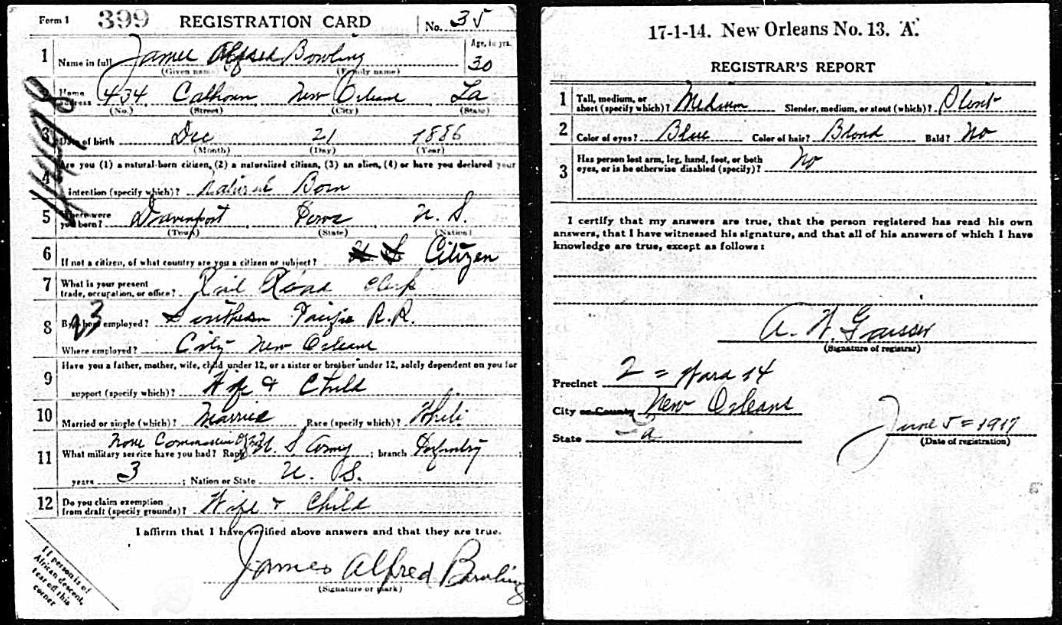 Form 1 399 REGISTRATION CARD No. 35
1 Name in full James Alfred Bowling Age, in yrs. 30
(Given name) (Family name)
2 Home address 434 Calhoun New Orleans La
(No.) (Street) (City) (State)
3 Date of birth Dec 21 1886
(Month) (Day) (Year)
Are you (1) a natural-born citizen, (2) a naturalized citizen, (3) an alien, (4) or have you declared your
4 intention (specify which)? Natural Born
5 Where were you born? Davenport Iowa U. S.
(Town) (State) (Nation)
6 If not a citizen, of what country are you a citizen or subject? U S Citizen
7 What is your present trade, occupation, or office? Rail Road Clerk
8 By whom employed? Southern Pacific R.R.
23
Where employed? City New Orleans
9 Have you a father, mother, wife, child under 12, or a sister or brother under 12, solely dependent on you for
support (specify which)? Wife & Child
10 Married or single (which)? Married Race (specify which)? White
11 What military service have you had? Rank U S Army ; branch Infantry ;
years 3 ; Nation or State U. S.
12 Do you claim exemption from draft (specify grounds)? Wife & Child
I affirm that I have verified above answers and that they are true.
James Alfred Bowling
(Signature or mark)
If person is of
African descent,
tear off this
corner
17-1-14. New Orleans No. 13. 'A'.
REGISTRAR'S REPORT
1 Tall, medium, or short (specify which)? Medium Slender, medium, or stout (which)? Stout
2 Color of eyes? Blue Color of hair? Blond Bald? No
3 Has person lost arm, leg, hand, foot, or both
eyes, or is he otherwise disabled (specify)? No
I certify that my answers are true, that the person registered has read his own
answers, that I have witnessed his signature, and that all of his answers of which I have
knowledge are true, except as follows:
(Signature of registrar)
Precinct 2 = Ward 14
City or County New Orleans
State La
June 5 = 1917
(Date of registration)